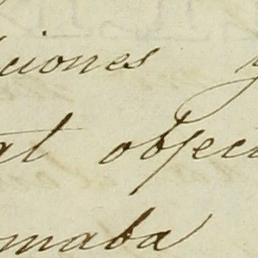 ciones y
al objec
maba